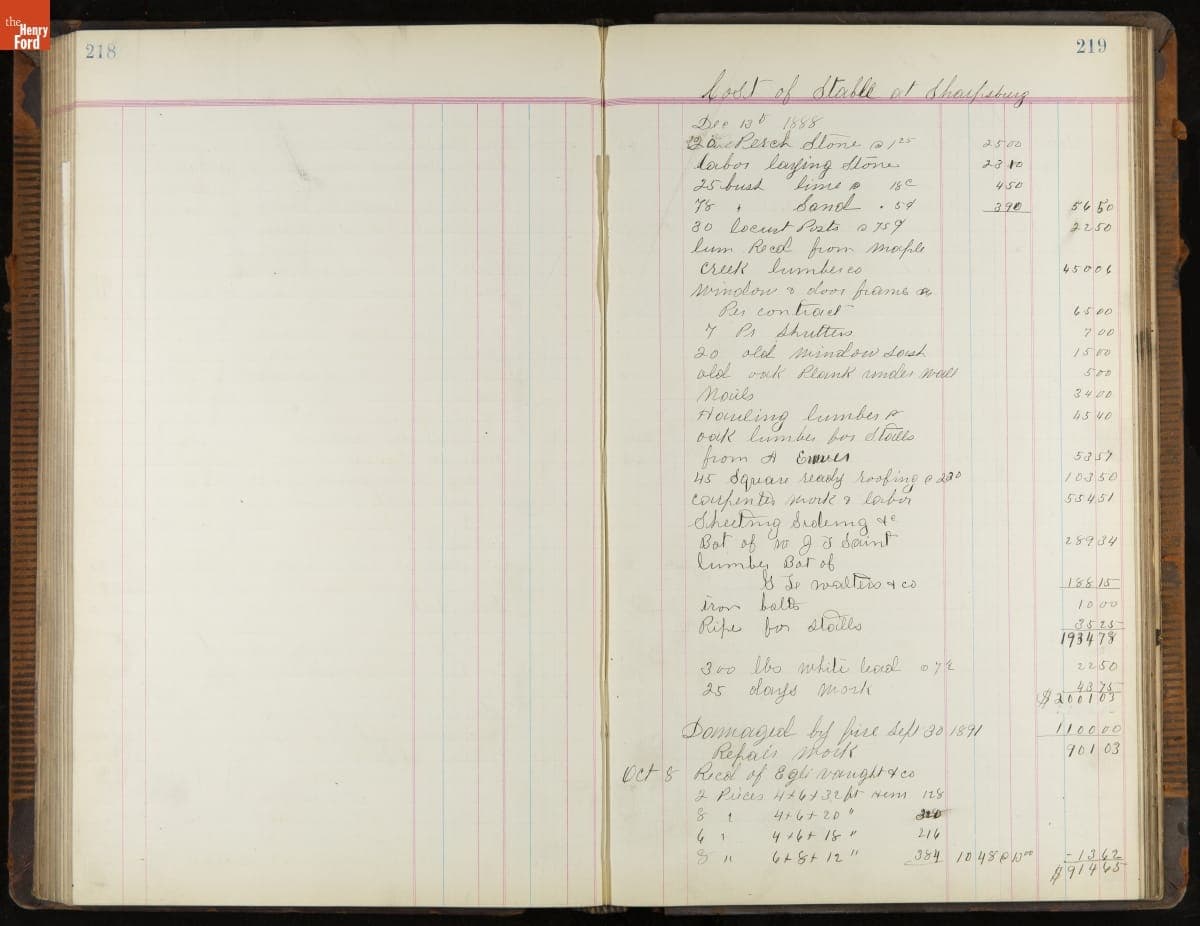 the
Henry
Ford
218
219
Cost of Stable at Sharpsburg
Dec 13th 1888
20 Perch Stone @ 1 25 25 00
labor laying Stone 23 10
25 bush lime @ 18c 4 50
78 " Sand . 5¢ 3 90 56 50
30 locust Posts @ 75¢ 22 50
lum Recd from Maple
Creek lumber co 450 06
Window & door frames as
Per contract 65 00
7 Pr Shutters 7 00
20 old window Sash 15 00
old oak Plank under wall 5 00
Nails 34 00
Hauling lumber 45 40
oak lumber for Stalls
from A 53 57
45 Square ready roofing @ 230 103 50
Carpenter work & labor 554 51
Sheeting Sideing &c
Bot of W J T Saint 289 34
lumber Bot of
walters & co 188 15
iron bolts 10 00
Pipe for stalls 35 25
1934 78
300 lbs white lead @ 7½ 22 50
25 days work 43 75
$2001 03
Damaged by fire Sept 30 1891 1100 00
Repair work 901 03
Oct 8 Recd of Egli vaught & co
2 Pieces 4+6+32 ft Hem 128
8 " 4+6+20 " 320
6 " 4+6+18 " 216
8 " 6+8+12 " 384 1048 @ 13 00 - 13 62
$914 65